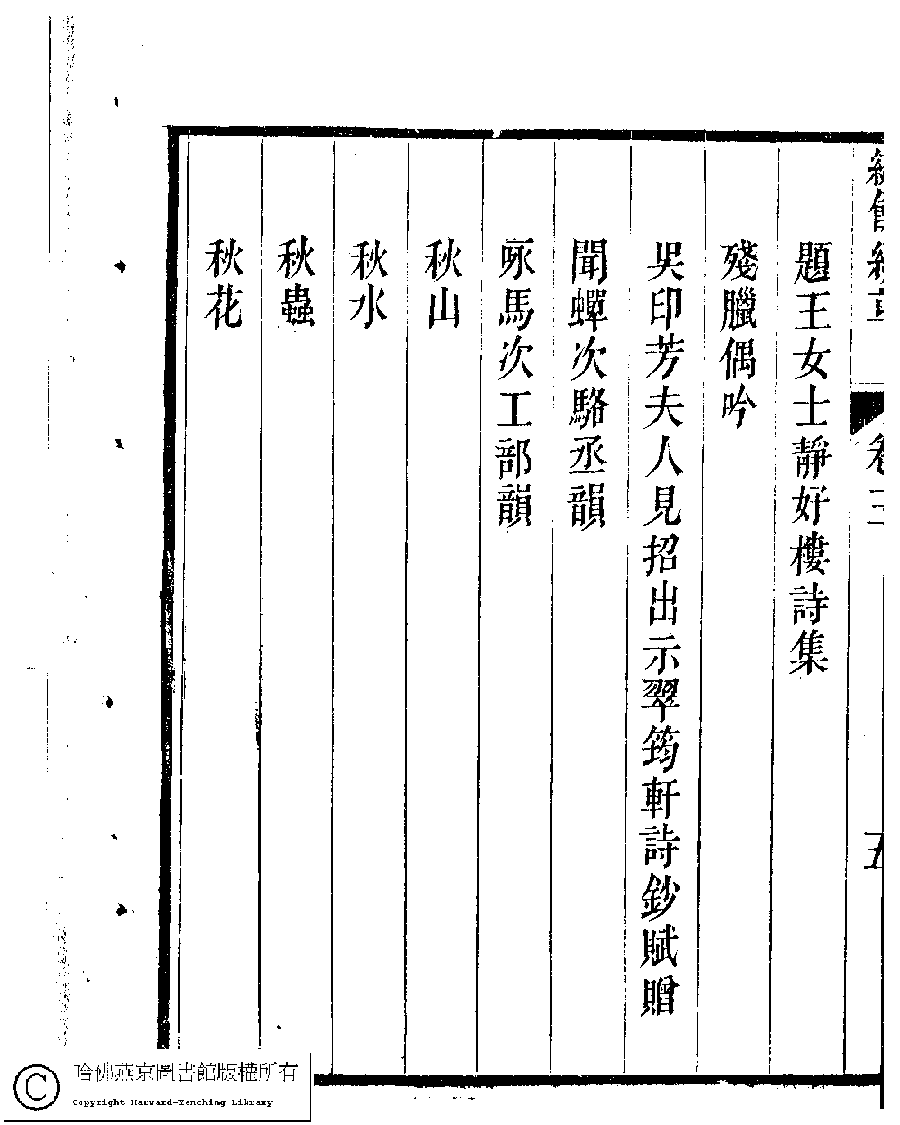 卷三
五
題王女士靜好樓詩集
殘臘偶吟
吳印芳夫人見招出示翠筠軒詩鈔賦贈
聞蟬次駱丞韻
瘦馬次工部韻
秋山
秋水
秋蟲
秋花
哈佛燕京圖書館版權所有
Copyright Harvard-Yenching Library